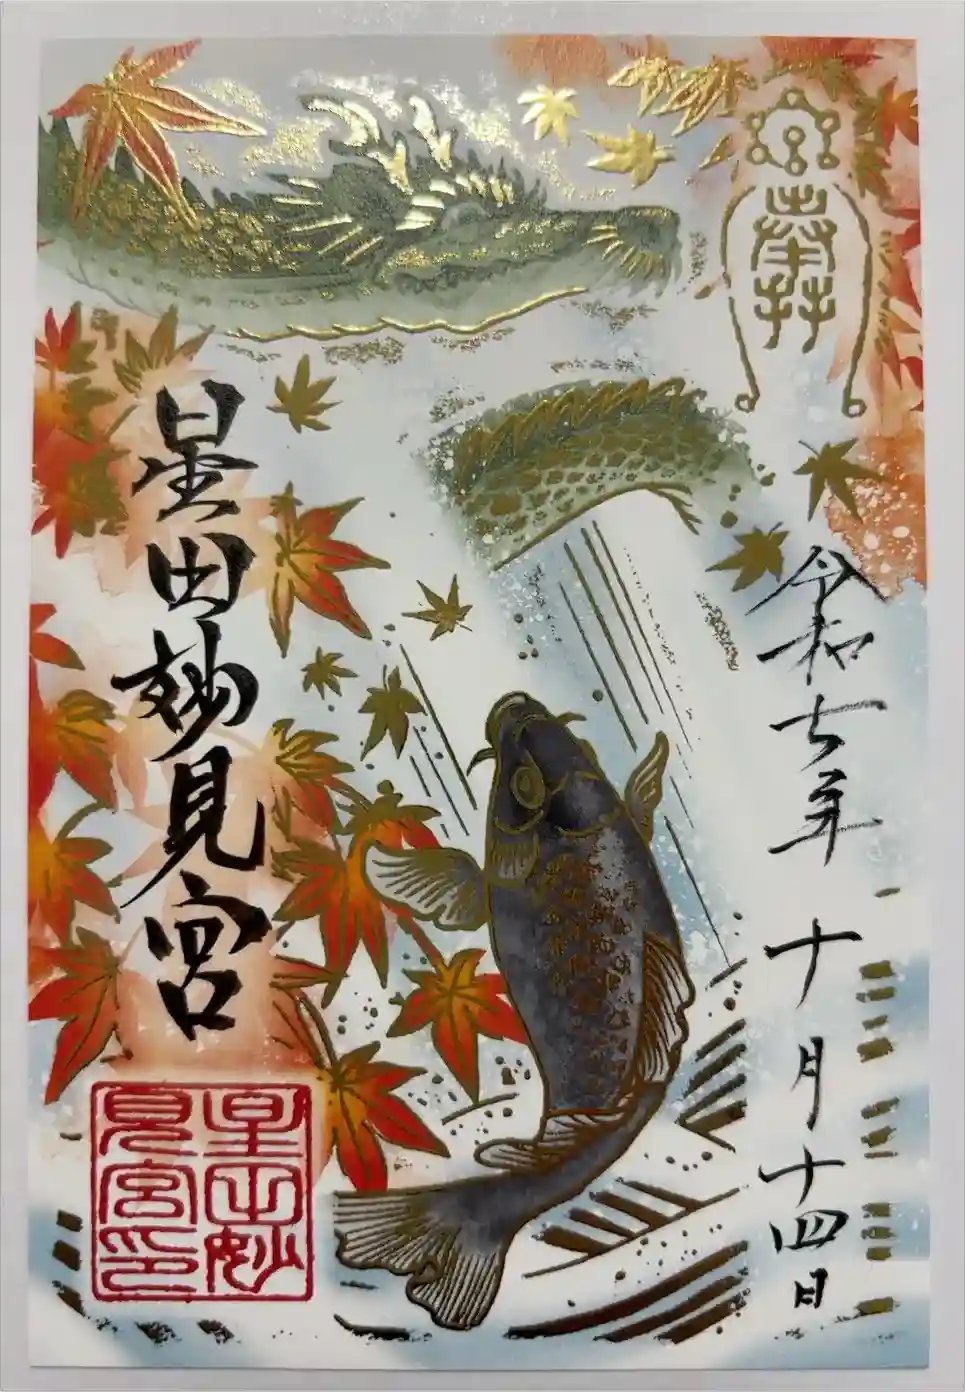 奉拝
令和七年 十月十四日
星田妙見宮
星田妙
見宮印